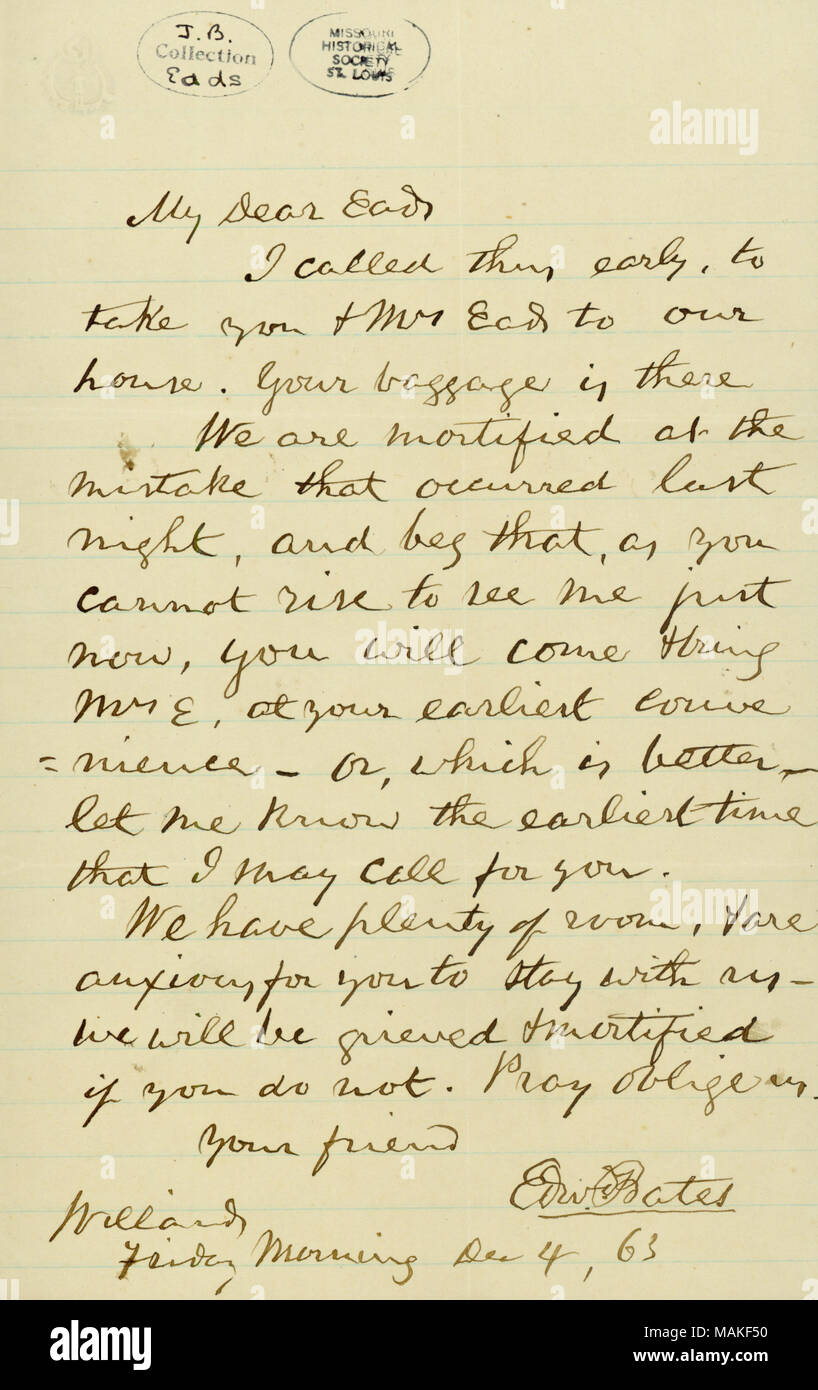 J.B.
Collection
Eads
MISSOURI
HISTORICAL
SOCIETY
ST. LOUIS
My Dear Eads
I called thus early, to
take you & Mrs Eads to our
house. Your baggage is there
We are mortified at the
mistake that occurred last
night, and beg that, as you
cannot rise to see me just
now, you will come & bring
Mrs E, at your earliest conve
=nience – or, which is better –
let me know the earliest time
that I may call for you.
We have plenty of room, & are
anxious for you to stay with us –
we will be grieved & mortified
if you do not. Pray oblige us.
Your friend
Edw. Bates
Willards
Friday Morning Dec 4, 63
a
alamy
a
alamy
a
alamy
a
alamy stock photo
MAKF50
www.alamy.com